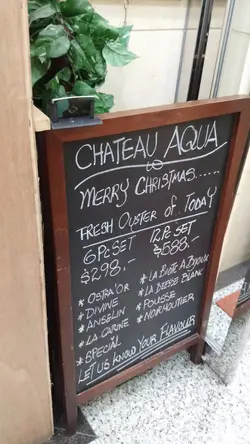 CHATEAU AQUA
MERRY CHRISTMAS.....
FRESH OYSTER of TODAY
6 Pc SET
$298.-
12 Pc SET
$588.-
* OSTRA'OR
* DIVINE
* ANSELIN
* LA GARINE
* SPECIAL
* LA BOITE A BIJOUX
* LA BEBBE BLANC
* POUSSE
* NOIRMOUTIER
LET US KNOW YOUR FLAVOUR